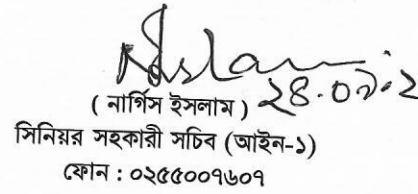 ২৪.০৯.২
( নার্গিস ইসলাম )
সিনিয়র সহকারী সচিব (আইন-১)
ফোন : ০২৫৫০০৭৬০৭